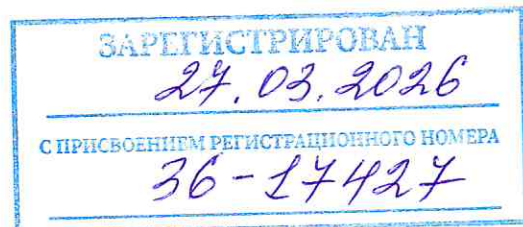 ЗАРЕГИСТРИРОВАН
27.03.2026
С ПРИСВОЕНИЕМ РЕГИСТРАЦИОННОГО НОМЕРА
36-17427